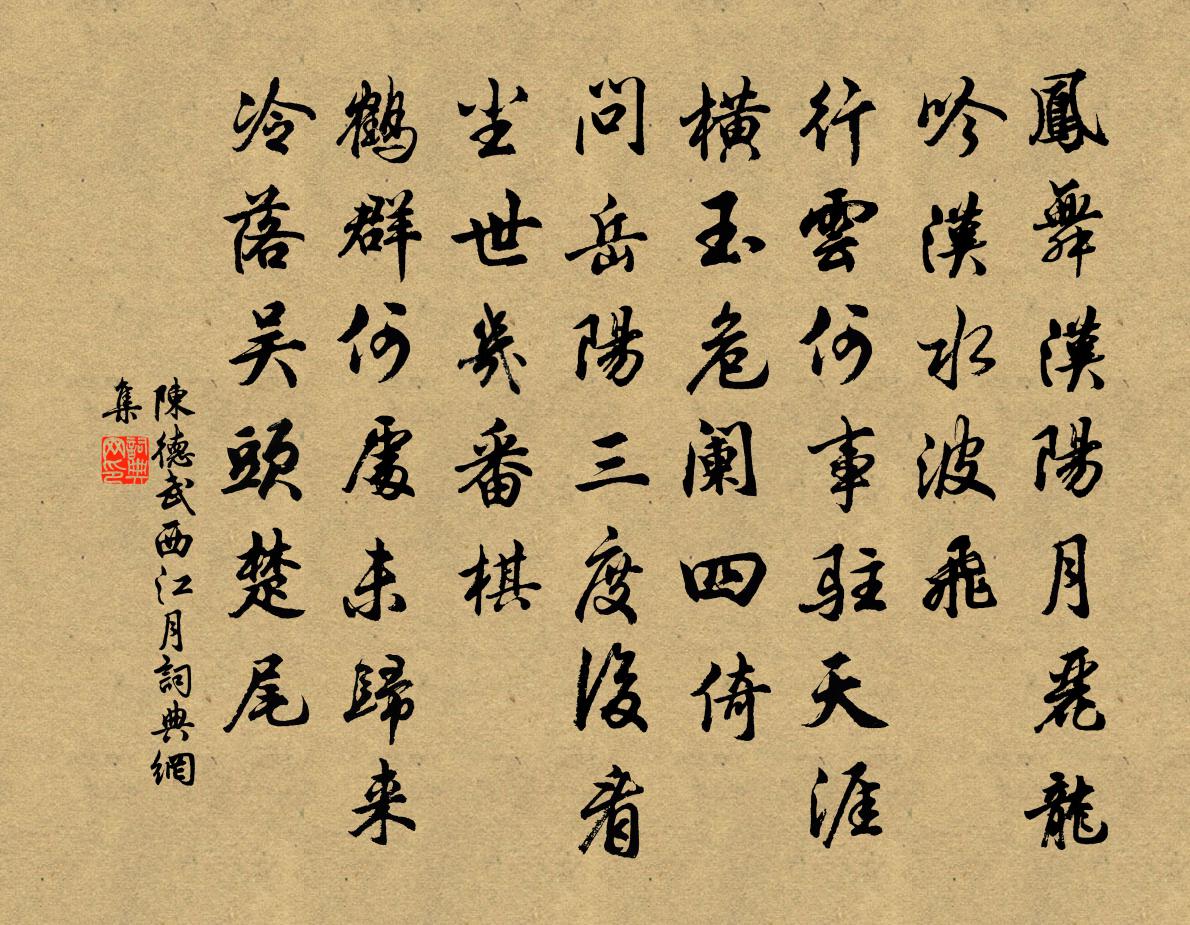 鳳舞漢陽月麗龍
吟漢水波飛
行雲何事駐天涯
橫玉危闌四倚
問岳陽三度後看
尘世幾番棋
鶴群何處未歸来
冷落吴頭楚尾
陳德武西江月詞典網
集
詞典
网印